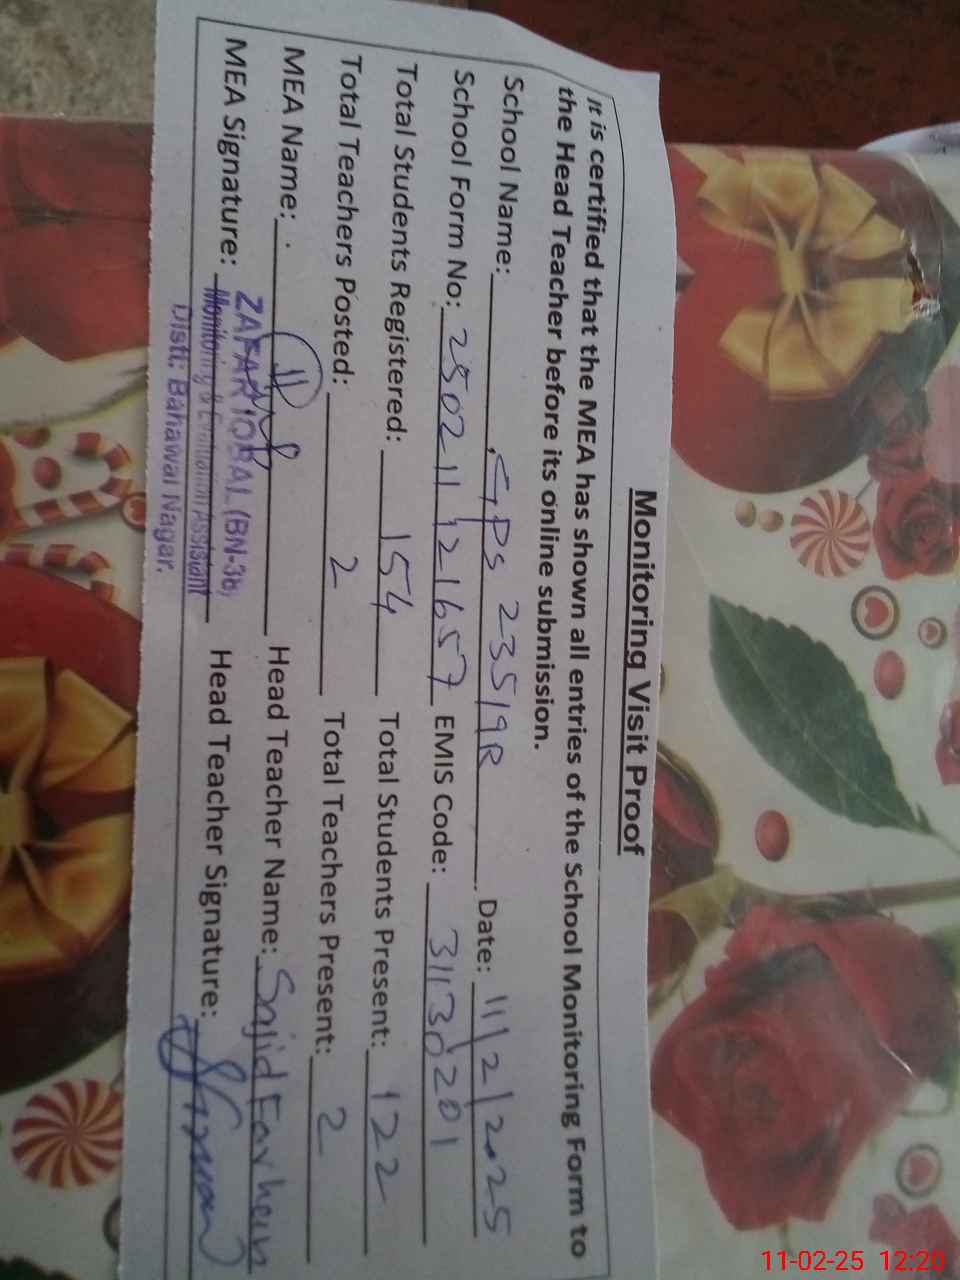 Monitoring Visit Proof
It is certified that the MEA has shown all entries of the School Monitoring Form to
the Head Teacher before its online submission.
School Name: GPS 235/9R Date: 11/2/2025
School Form No: 250211121657 EMIS Code: 31130201
Total Students Registered: 154 Total Students Present: 122
Total Teachers Posted: 2 Total Teachers Present: 2
MEA Name: Head Teacher Name: Sajid Farheen
ZAFAR IQBAL (BN-36)
MEA Signature: Monitoring & Evaluation Assistant Head Teacher Signature:
Distt: Bahawal Nagar.
11-02-25 12:20